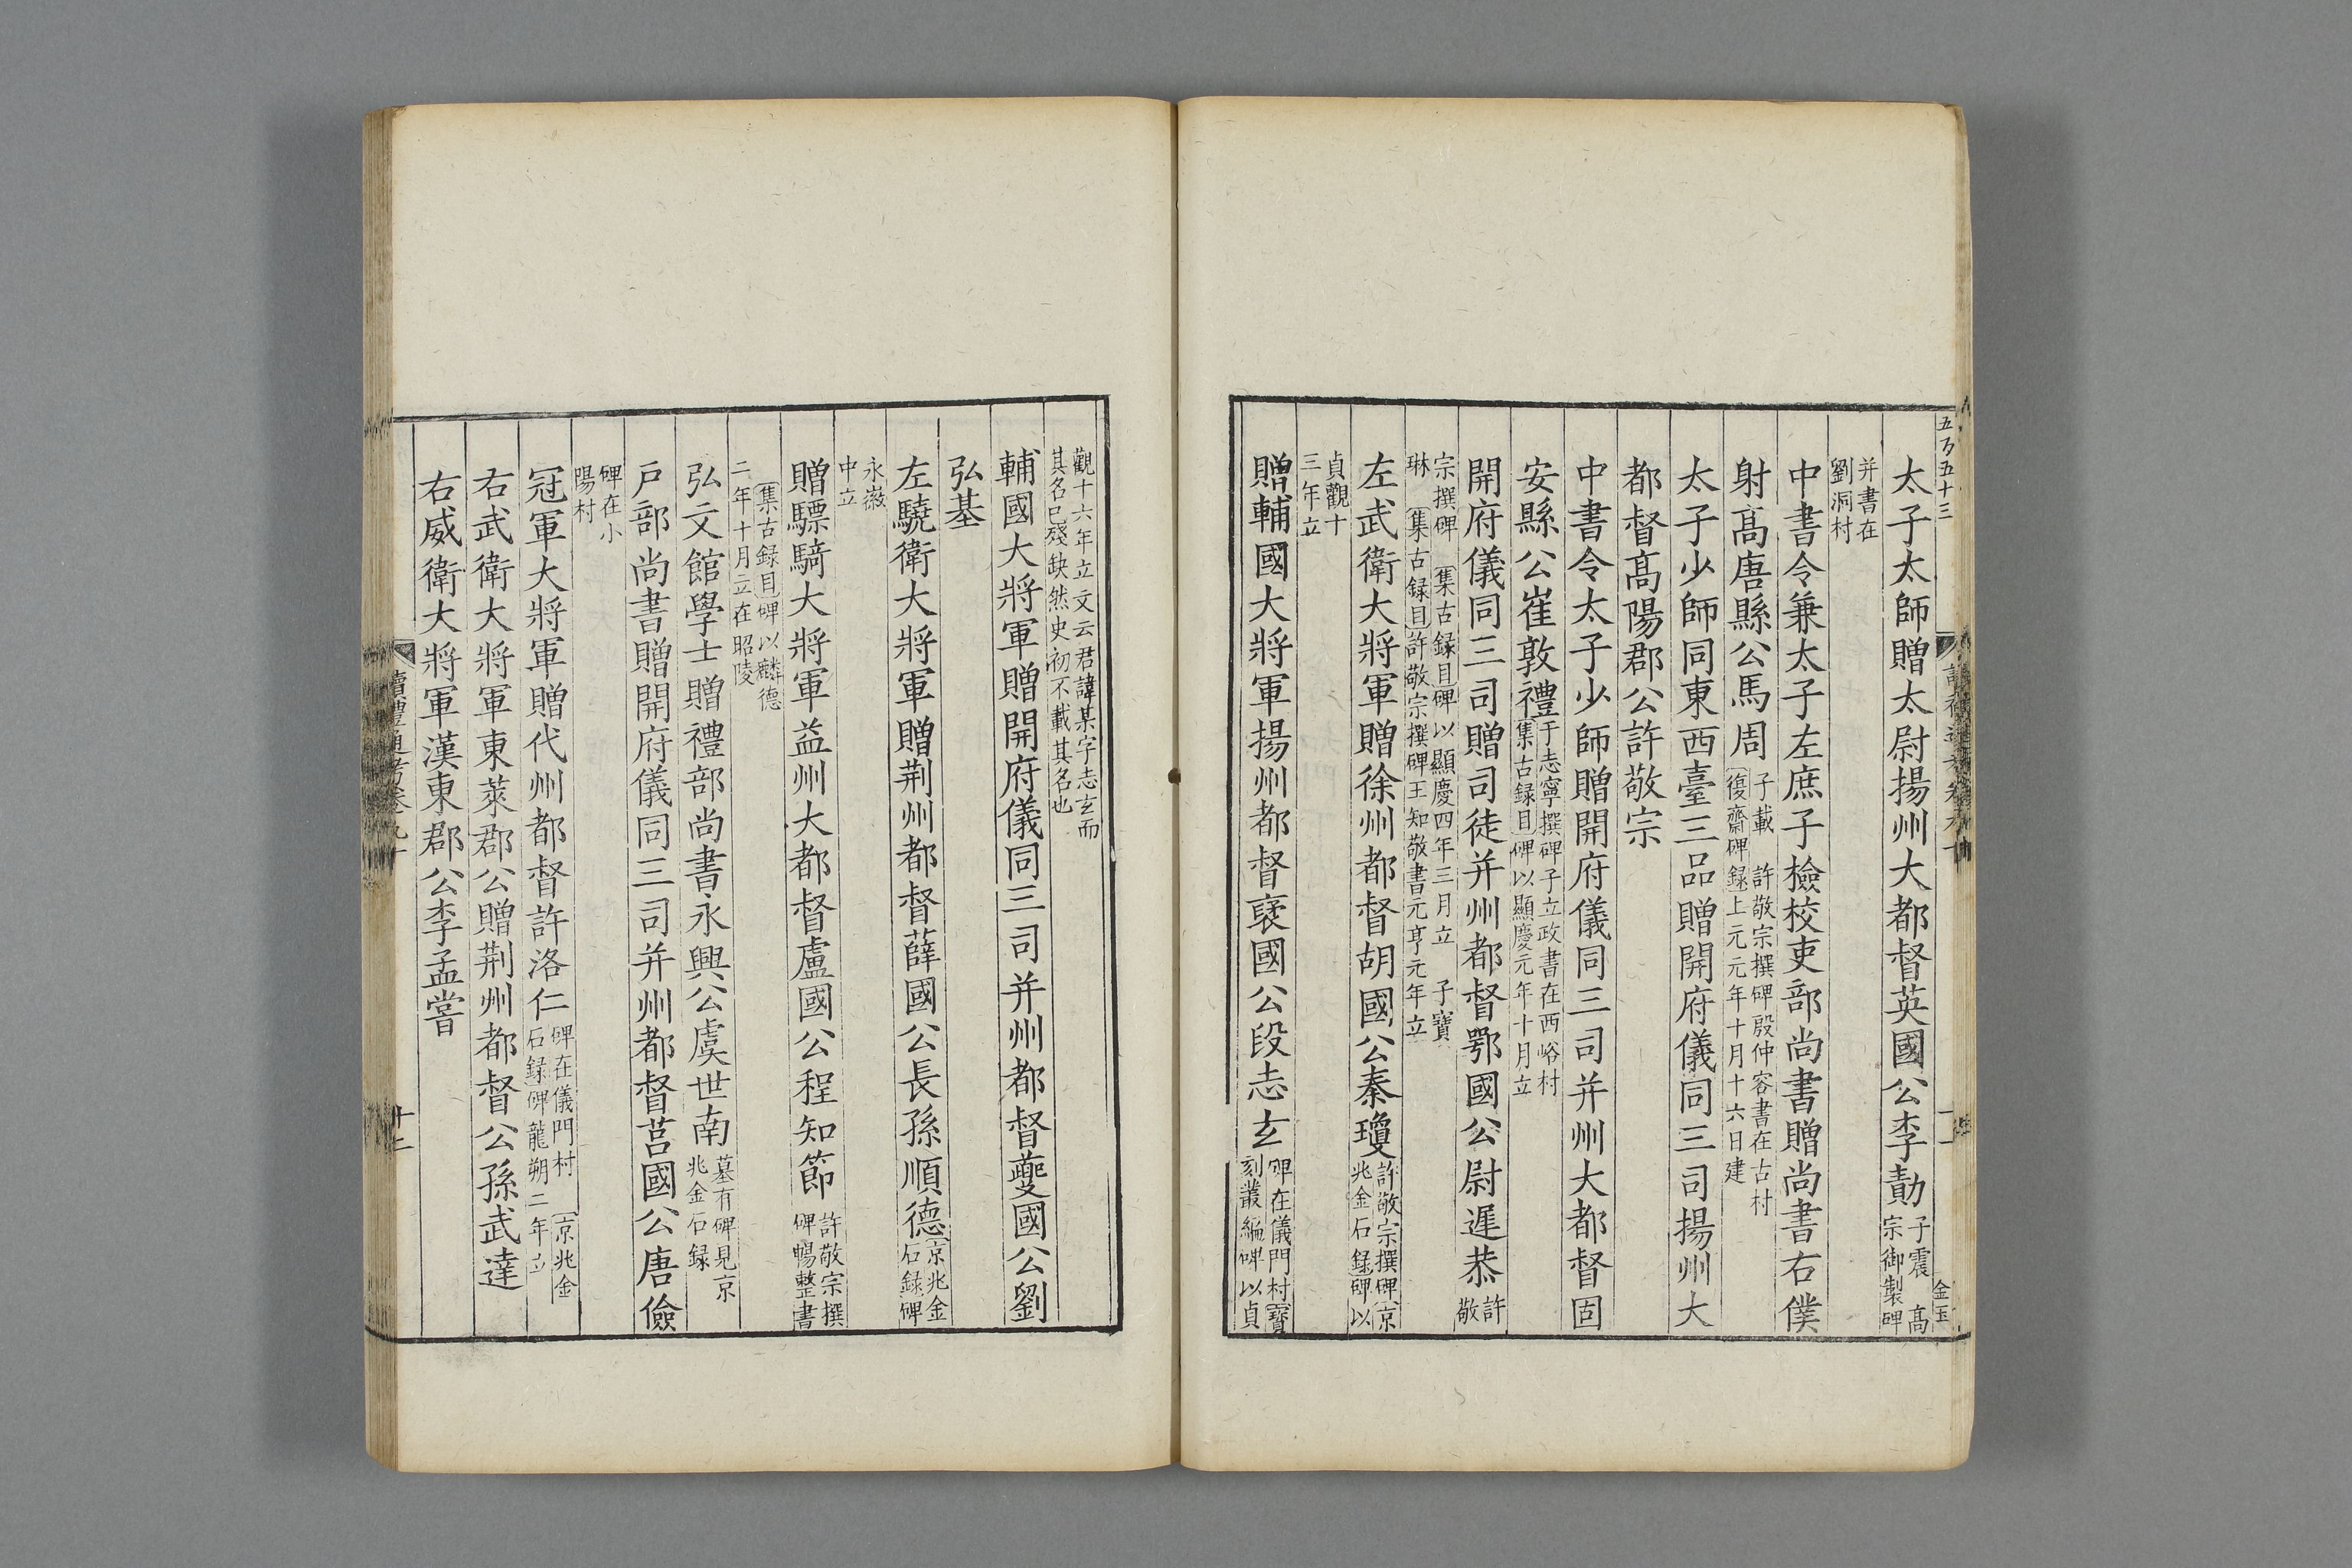 五百五十三
金玉
太子太師贈太尉揚州大都督英國公李勣子震 髙
宗御製碑
并書在
劉洞村
中書令兼太子左庶子檢校吏部尚書贈尚書右僕
射髙唐縣公馬周子載 許敬宗撰碑殷仲容書在古村
復齋碑録上元元年十月十六日建
太子少師同東西臺三品贈開府儀同三司揚州大
都督髙陽郡公許敬宗
中書令太子少師贈開府儀同三司并州大都督固
安縣公崔敦禮于志寧撰碑子立政書在西峪村
集古録目碑以顯慶元年十月立
開府儀同三司贈司徒并州都督鄂國公尉遲恭許
敬
宗撰碑 集古録目碑以顯慶四年三月立 子寶
琳 集古録目許敬宗撰碑王知敬書元亨元年立
左武衛大將軍贈徐州都督胡國公秦瓊許敬宗撰碑京
兆金石録碑以
貞觀十
三年立
贈輔國大將軍揚州都督褒國公段志玄碑在儀門村寶
刻叢編碑以貞
觀十六年立文云君諱某字志玄而
其名已殘缺然史初不載其名也
輔國大將軍贈開府儀同三司并州都督夔國公劉
弘基
左驍衛大將軍贈荆州都督薛國公長孫順德京兆金
石録碑
永徽
中立
贈驃騎大將軍益州大都督盧國公程知節許敬宗撰
碑暢整書
集古録目碑以麟德
二年十月立在昭陵
弘文館學士贈禮部尚書永興公虞世南墓有碑見京
兆金石録
戶部尚書贈開府儀同三司并州都督莒國公唐儉
碑在小
陽村
冠軍大將軍贈代州都督許洛仁碑在儀門村 京兆金
石録碑龍朔二年立
右武衛大將軍東萊郡公贈荆州都督公孫武達
右威衛大將軍漢東郡公李孟嘗
讀禮通考卷九十
十二